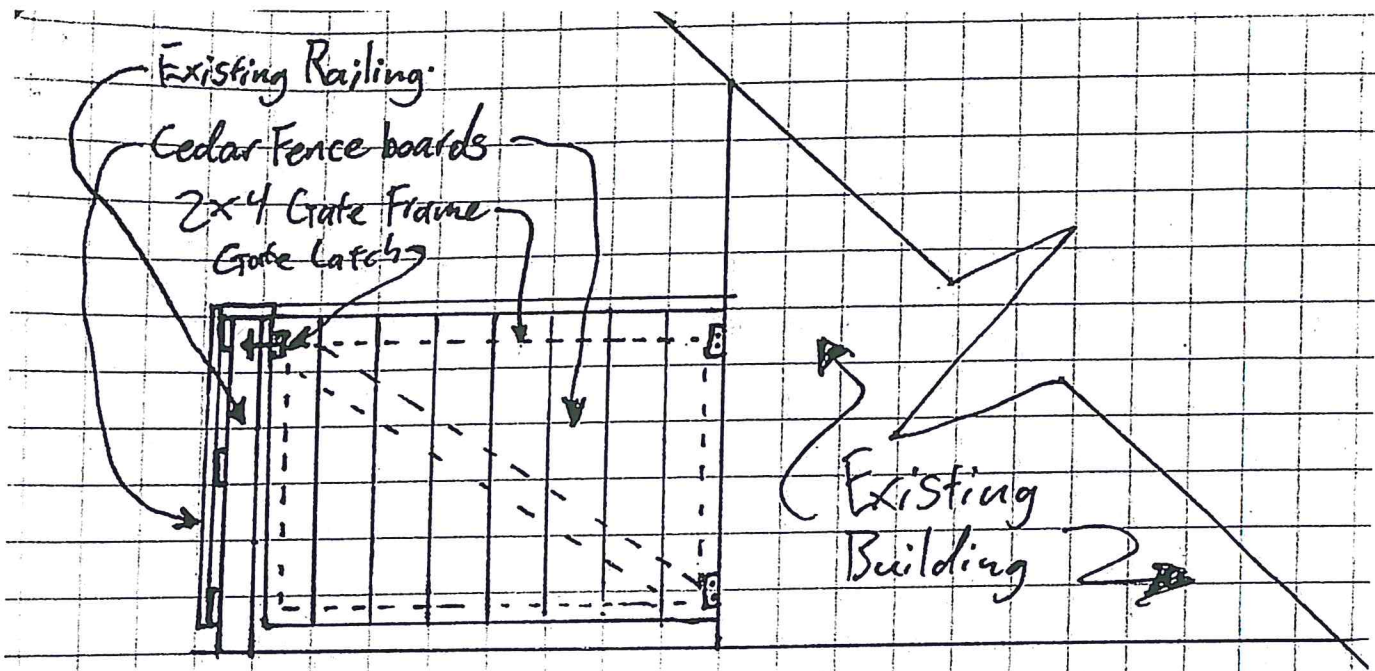 Existing Railing.
Cedar Fence boards
2x4 Gate Frame
Gate Latch
Existing
Building